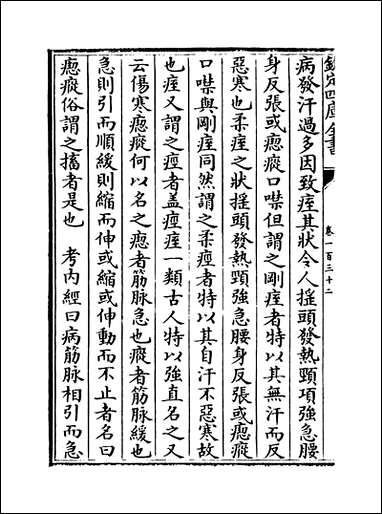 欽定四庫全書
卷一百三十二
病發汗過多因致痓其狀令人揺頭發熱頸項強急腰
身反張或瘛瘲口噤但謂之剛痓者特以其無汗而反
惡寒也柔痓之狀揺頭發熱頸強急腰身反張或瘛瘲
口噤與剛痓同然謂之柔痓者特以其自汗不惡寒故
也痓又謂之痙者盖痙痓一類古人特以強直名之又
云傷寒瘛瘲何以名之瘛者筋脉急也瘲者筋脉緩也
急則引而順緩則縮而伸或縮或伸動而不止者名曰
瘛瘲俗謂之搐者是也　考内經曰病筋脉相引而急